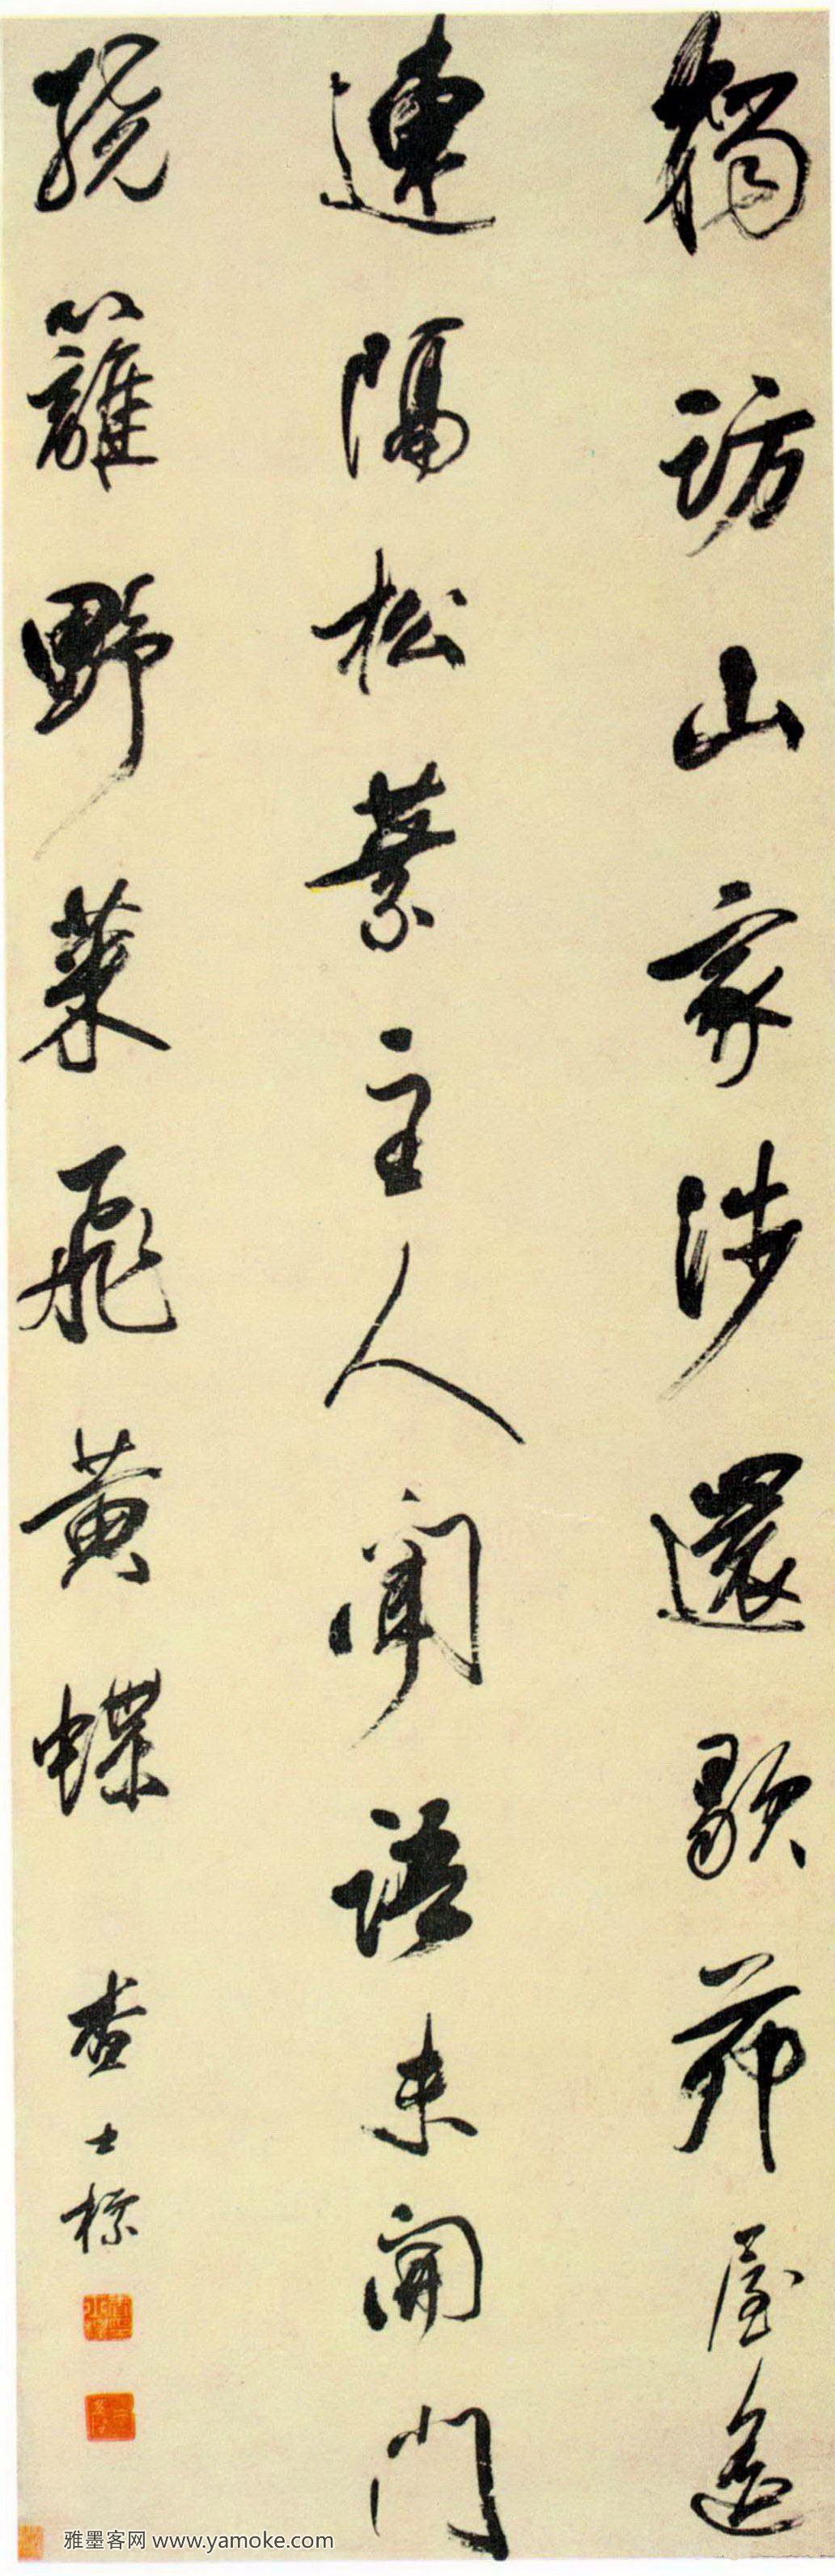 獨訪山家涉還歇茆屋遙
連隔松葉主人聞語未開門
繞籬野菜飛黃蝶 查士標
雅墨客网 www.yamoke.com